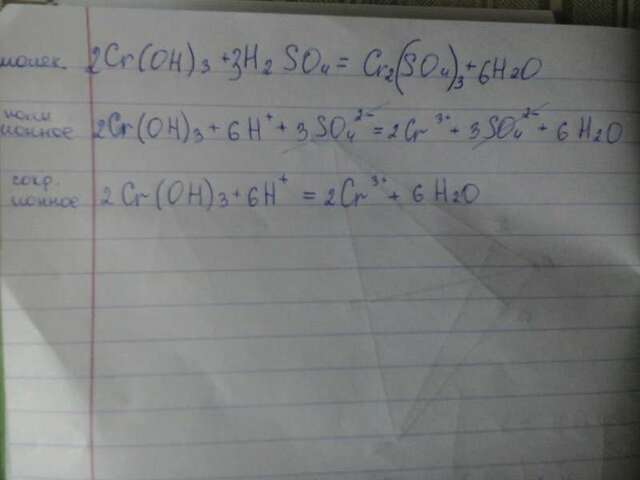 молек. 2Cr(OH)3 + 3H2SO4 = Cr2(SO4)3 + 6H2O
полн
ионное 2Cr(OH)3 + 6H⁺ + 3SO4²⁻ = 2Cr³⁺ + 3SO4²⁻ + 6H2O
сокр.
ионное 2Cr(OH)3 + 6H⁺ = 2Cr³⁺ + 6H2O